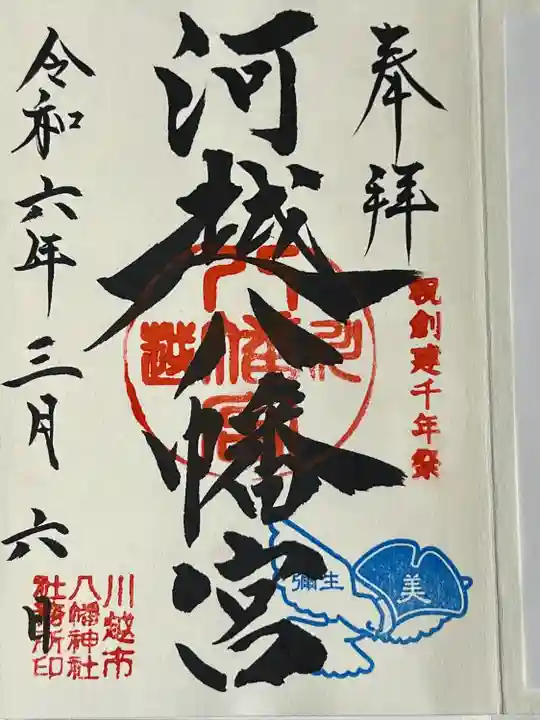 奉拝
祝創建千年祭
河越八幡宮
川越八幡宮
彌生
美
令和六年三月六日
川越市
八幡神社
社務所印